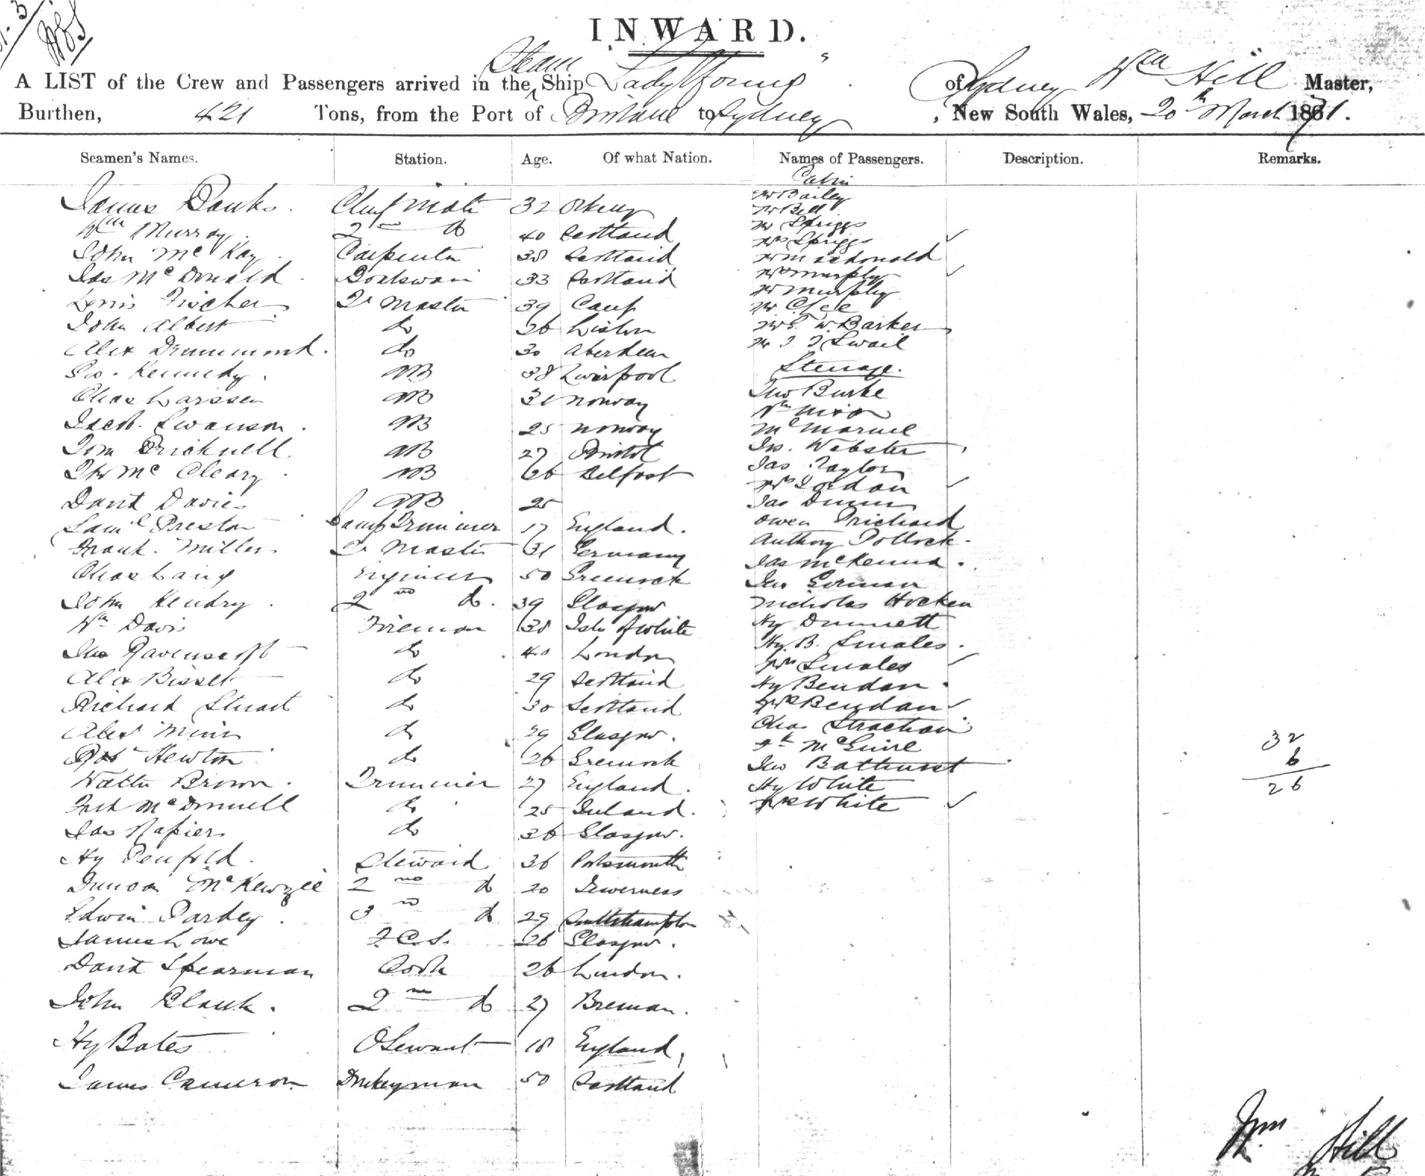 INWARD.
A LIST of the Crew and Passengers arrived in the Steam Ship "Lady Young" of Sydney Wm Hill Master,
Burthen, 421 Tons, from the Port of Brisbane to Sydney, New South Wales, 20th March 1871.
Seamen's Names. Station. Age. Of what Nation. Names of Passengers. Description. Remarks.
Cabin
James Banks. Chief Mate 32 Orkney Mr Bailey
Mr Bell
Wm Murray 2nd do 40 Scotland Mr Spriggs
John McKay Carpenter 38 Scotland Mrs Spriggs
Jas McDonald Boatswain 33 Scotland Mr Macdonald
Mrs Murphy
Fischer Qr Master 39 Mr Murphy
John Albert do 26 Lisbon Mr Clee
Alex Drummond. do 30 Aberdeen Mr Barker
Kennedy. AB 38 Liverpool Steerage.
Chas Larssen AB 31 Norway Jno Burke
Jacob Swanson. AB 25 Norway Wm Nixon
Tom Bricknell AB 27 Bristol
McCleary AB 26 Belfast Jas. Webster
David Davies AB 25 Jas Taylor
Saml Preston Lamp Trimmer 17 England. Mrs Jordan
Frank Miller Qr Master 31 Germany Jas Dunn
Chas Laing Engineer 50 Greenock Owen Prichard
John Hendry. 2nd do. 39 Glasgow Anthony Pollock.
Wm Davis Fireman 38 Isle of White Jas McKenna.
Jno Ravenscroft do 40 London Jno Gorman
Alex Bisset do 29 Scotland Nicholas Hocken
Richard Stuart do 30 Scotland Hy Dunnett
Alex do 29 Glasgow. Hy. B. Smales.
Robt Newton do 26 Greenock Mrs Smales
Walter Brown. Trimmer 27 England. Hy Bendan.
McDonnell do 25 Ireland. Mrs Bendan
Jas Napier do 26 Glasgow. Chas Strachan
Hy Penfold. Steward 36 Portsmouth McGuire
Duncan McKenzie 2nd do 20 Inverness Jno Bathurst
Edwin 3rd do 29 Southampton Hy White
James Lowe F.C.S. 26 Glasgow. Mrs White
David Spearman Cook 26 London.
John Blank. 2nd do 27 Breman.
Hy Bates 18 England,
James Cameron Donkeyman 50 Scotland
32
6
26
Wm Hill